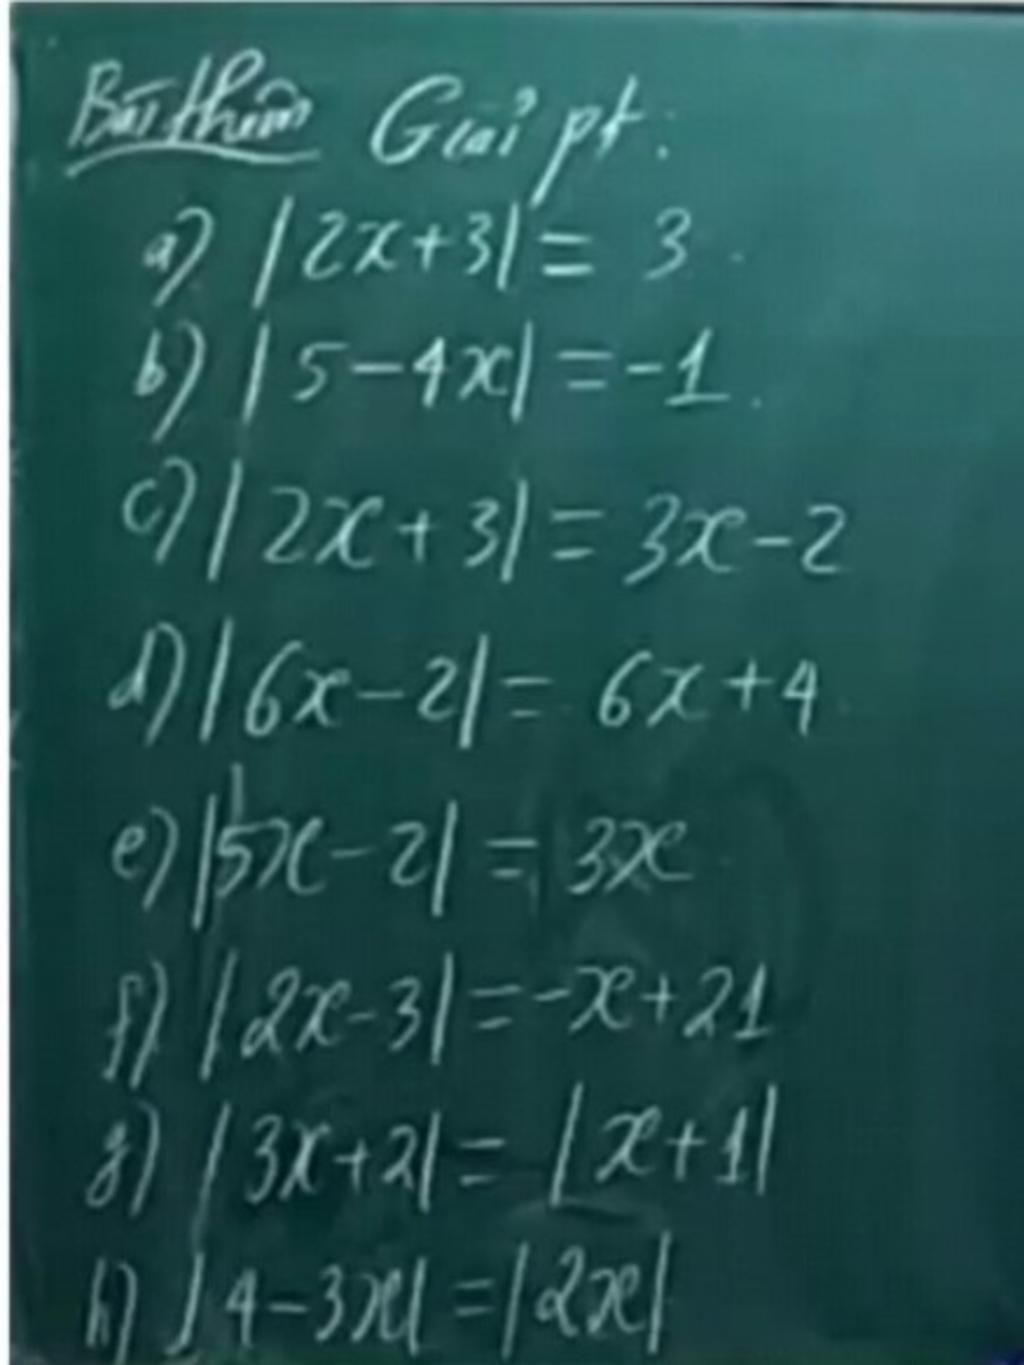 Bài thêm Giải pt:
a) |2x+3| = 3.
b) |5-4x| = -1.
c) |2x+3| = 3x-2
d) |6x-2| = 6x+4
e) |5x-2| = 3x
f) |2x-3| = -x+21
g) |3x+2| = |x+1|
h) |4-3x| = |2x|